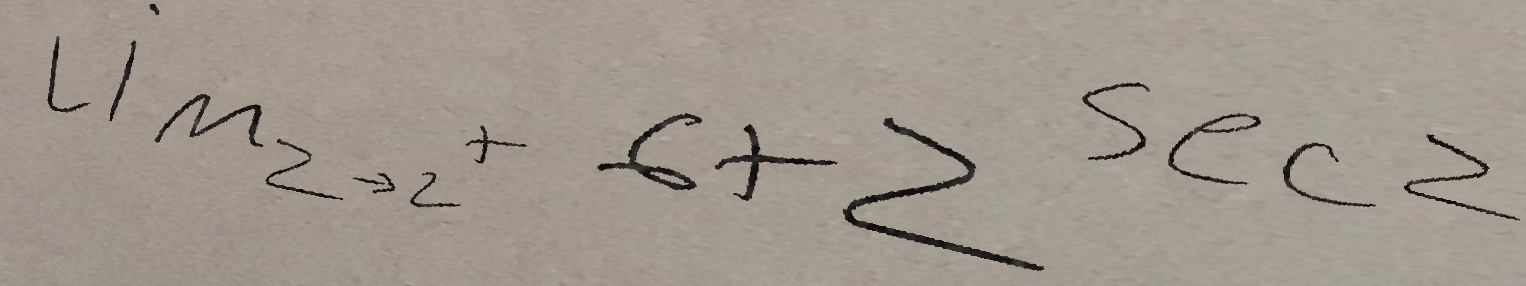 lim_{z→2^+} -6+z sec z